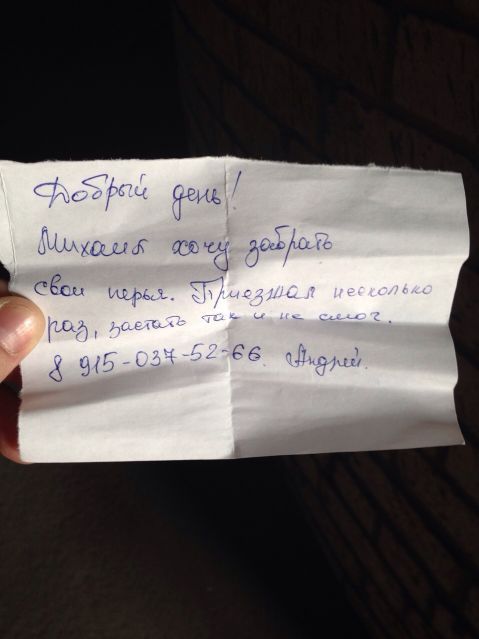 Добрый день!
Михаил хочу забрать
свои перья. Приезжал несколько
раз, застать так и не смог.
8 915-037-52-66. Андрей.